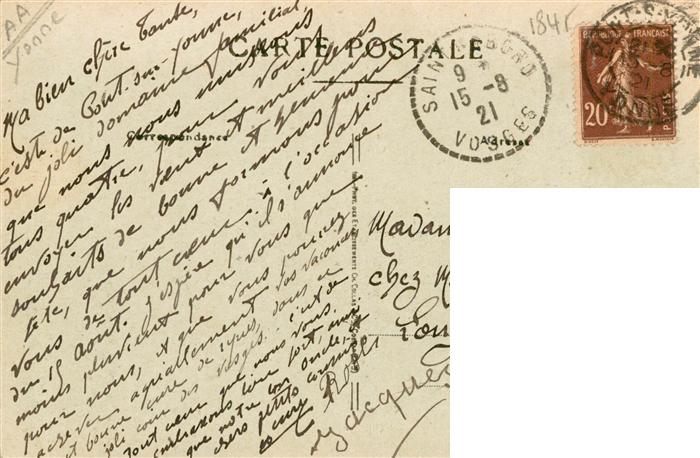 AA
Yonne
1845
CARTE POSTALE
Correspondance
Adresse
SAINT
9
15 -8
21
VOSGES
RÉPUBLIQUE FRANÇAISE
20
POSTES
PONT-S-YONNE
21
YONNE
Ma bien chère Tante,
C'est de Pont-sur-Yonne,
du joli domaine familial,
que nous nous unissons
tous quatre, pour vous
envoyer les vœux et meilleurs
souhaits de bonne et heureuse
fête, que nous formons pour
vous de tout cœur à l'occasion
du 15 août. J'espère qu'il s'annonce
moins pluvieux pour vous que
pour nous, et que vous pouvez
achever agréablement vos vacances
et bonne cure de repos, dans ce
joli coin des Vosges. C'est de
tout cœur que nous vous
embrassons tous tout, ainsi
que notre bon oncle, et
chers petits
Jacques
Madam
chez M